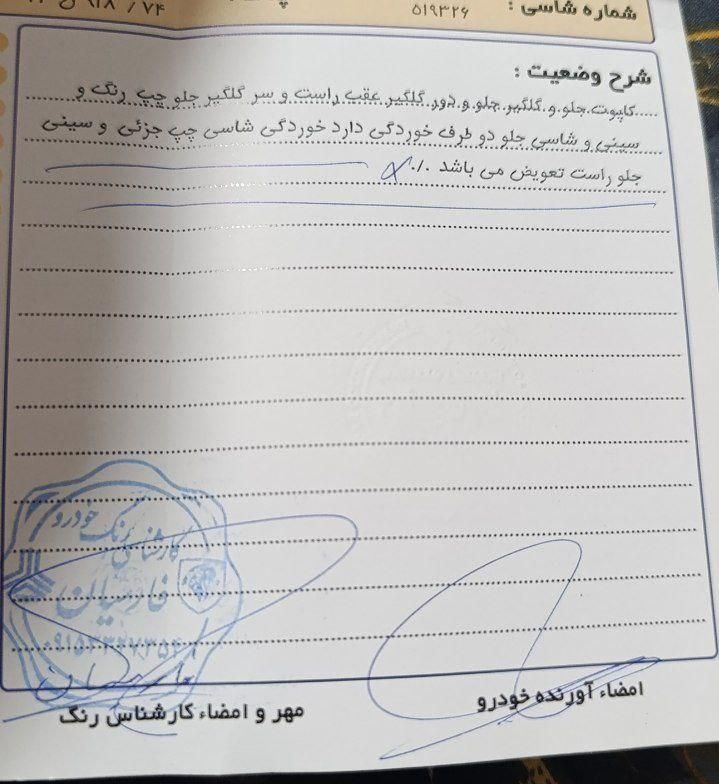 شماره شاسی : ۵۱۹۳۲۶
شرح وضعیت :
کاپوت جلو و گلگیر جلو و دور گلگیر عقب راست و سر گلگیر جلو چپ رنگ و
سینی و شاسی جلو دو طرف خوردگی دارد خوردگی شاسی چپ جزئی و سینی
جلو راست تعویض می باشد ./.
کارشناسی رنگ خودرو
فارسیان
امضاء آورنده خودرو
مهر و امضاء کارشناس رنگ